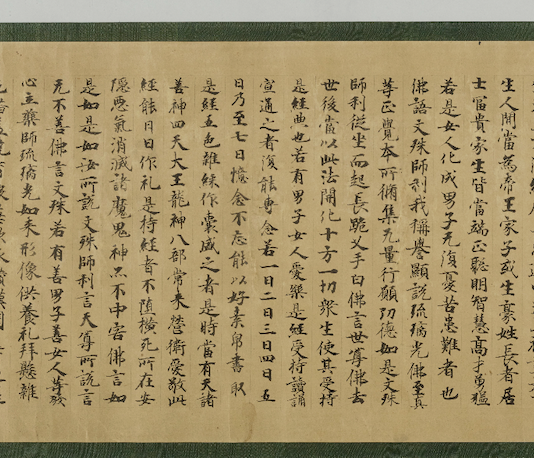 生人間當為帝王家子或生豪姓長者居
士富貴家生皆當端正聰明智慧高才勇猛
若是女人化成男子无復憂苦患難者也
佛語文殊師利我稱譽顯說琉璃光佛至真
等正覺本所脩集无量行願功德如是文殊
師利從坐而起長跪叉手白佛言世尊佛去
世後當以此法開化十方一切衆生使其受持
是經典也若有男子女人愛樂是經受持讀誦
宣通之者復能專念若一日二日三日四日五
日乃至七日憶念不忘能以好素帛書取
是經五色雜綵作囊盛之者是時當有天諸
善神四天大王龍神八部常来營衛愛敬此
經能日日作礼是持經者不墮橫死所在安
隱惡氣消滅諸魔鬼神亦不中害佛言如
是如是如汝所說文殊師利言天尊所說言
无不善佛言文殊若有善男子善女人等發
心立藥師琉璃光如来形像供養礼拜懸雜